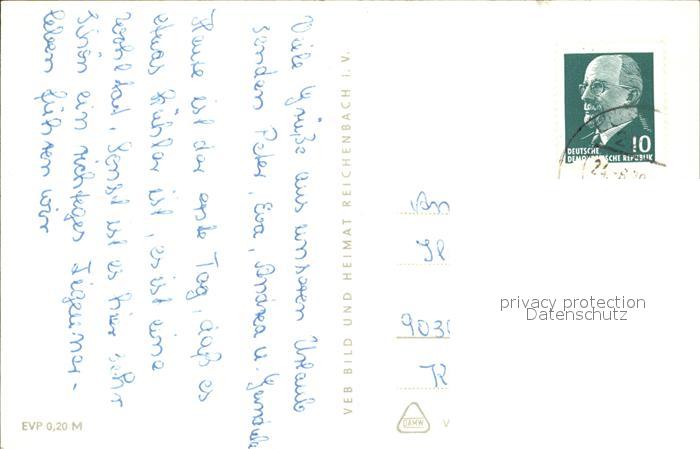 Viele Grüße aus unserem Urlaub
senden Peter, Eva, Andrea u.
Heute ist der erste Tag, daß es
etwas kühler ist, es ist eine
Wohltat. Sonst ist es hier sehr
schön ein richtiges Zigeuner-
leben führen wir
VEB BILD UND HEIMAT REICHENBACH I. V.
EVP 0,20 M
10
DEUTSCHE
DEMOKRATISCHE REPUBLIK
An
903
K
DAMW
V
privacy protection
Datenschutz